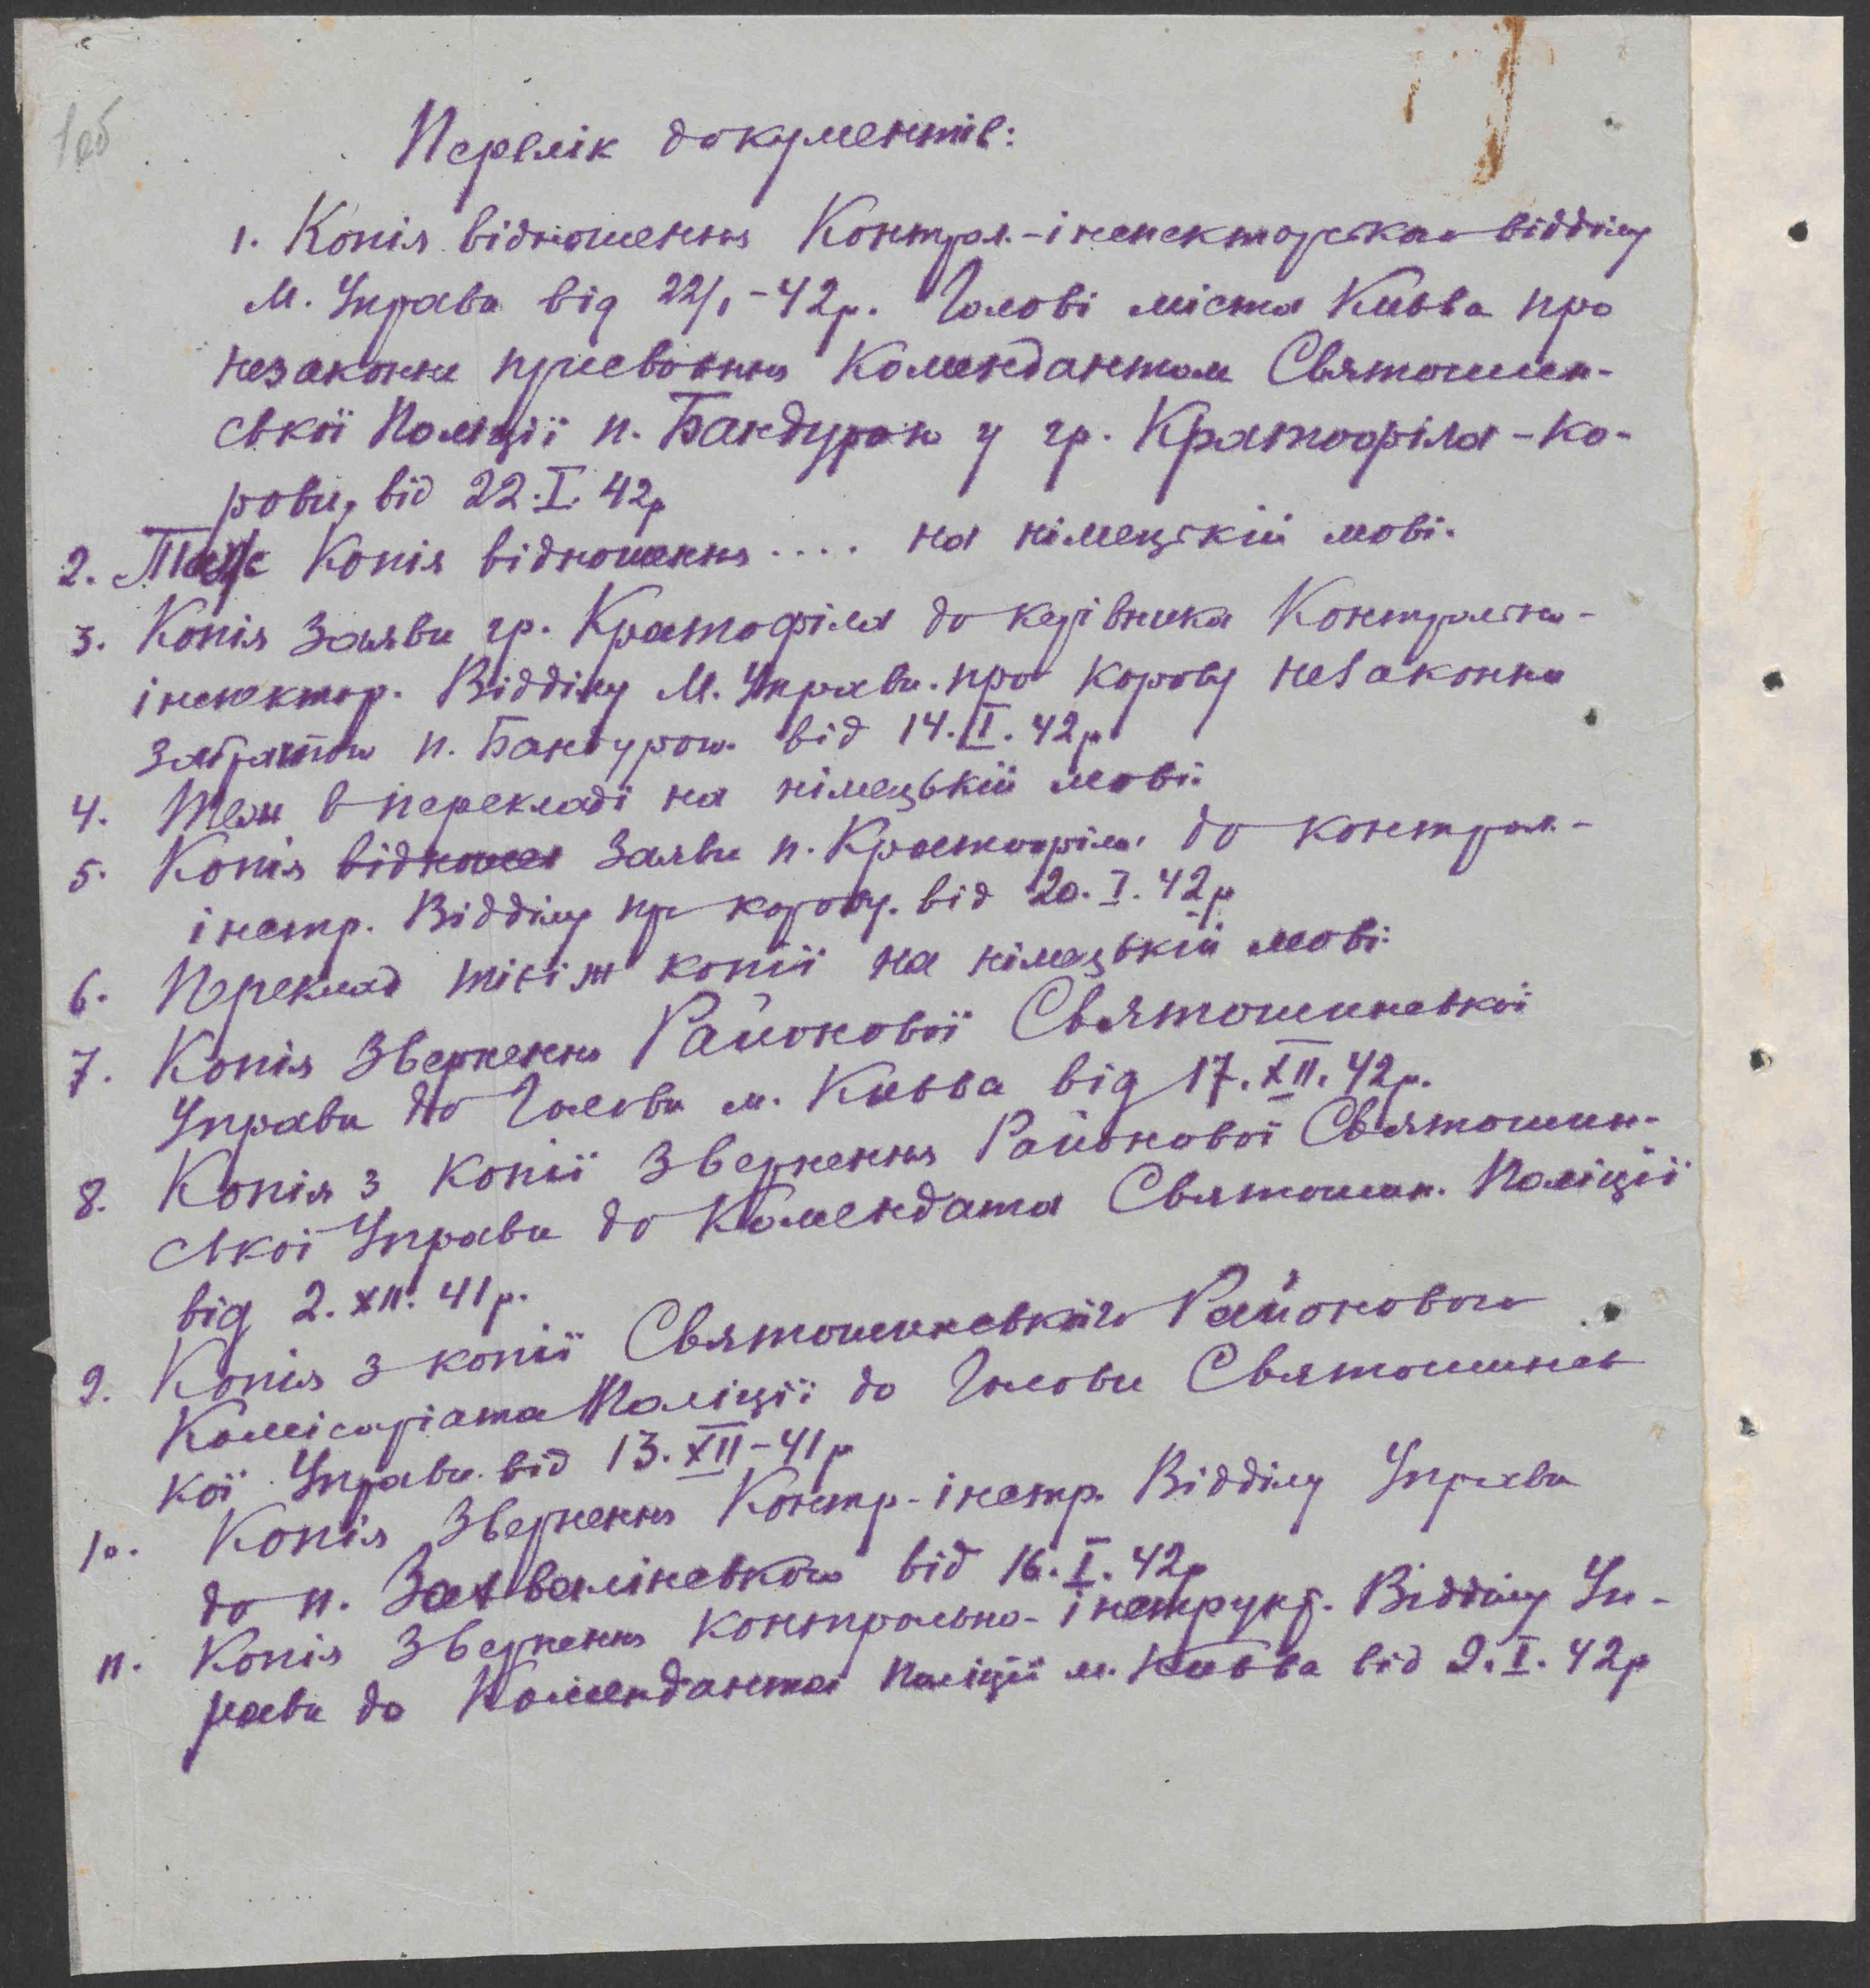 1об
Перелік документів:
1. Копія відношення Контрол.-інспекторського відділу
М. Управи від 22/I-42р. Голові міста Києва про
незаконне присвоєння Комендантом Святошин-
ської Поліції п. Бандурою у гр. Кратофіла - ко-
рови, від 22.I.42р
2. Таж Копія відношення .... на німецькій мові.
3. Копія Заяви гр. Кратофіла до керівника Контрольно-
інспектор. Відділу М. Управи. про корову незаконно
забратою п. Бандурою. від 14.II.42р
4. Теж в перекладі на німецькій мові.
5. Копія заяви п. Кратофіла до контрол.-
інстр. Відділу про корову. від 20.I.42р
6. Переклад тієї ж копії на німецькій мові.
7. Копія Звернення Районової Святошинської
Управи до Голови м. Києва від 17.XII.42р.
8. Копія з копії Звернення Районової Святошин-
ської Управи до Комендата Святошин. Поліції
від 2.XII.41р.
9. Копія з копії Святошинського Районового
Комісаріата Поліції до Голови Святошинсь
кої Управи. від 13.XII-41р
10. Копія Звернення Контр-інстр. Відділу Управи
до п. від 16.I.42р
11. Копія Звернення контрольно-інструкт. Відділу Уп-
рави до Коменданта Поліції м. Києва від 9.I.42р